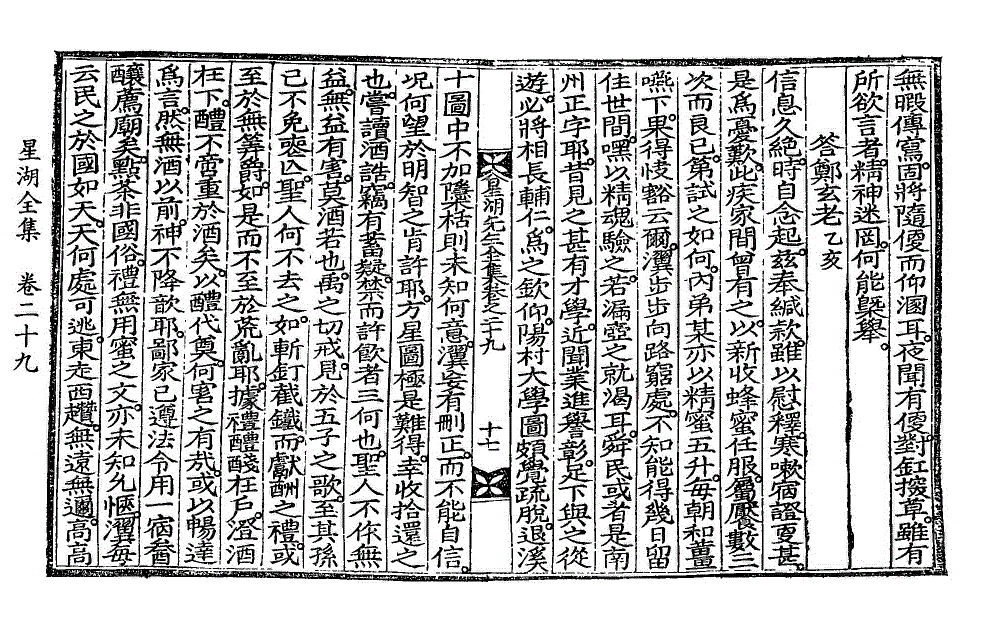 無暇傳寫。固將隨便而仰溷耳。夜聞有便。對缸援草。雖有
所欲言者。精神迷罔。何能槩擧。
答鄭玄老 乙亥
信息久絶。時自念起。玆奉緘款。雖以慰釋。寒嗽宿證更甚。
是爲憂歎。此疾家間曾有之。以新收蜂蜜任服。屬饜數三
次而良已。第試之如何。內弟某亦以精蜜五升。每朝和薑
嚥下。果得快豁云爾。瀷步步向路窮處。不知能得幾日留
住世間。嘿以精魂驗之。若漏壺之就渴耳。舜民或者是南
州正字耶。昔見之甚有才學。近聞業進譽彰。足下與之從
遊。必將相長輔仁。爲之欽仰。陽村大學圖。頗覺疏脫。退溪
星湖先生全集卷之二十九 十七
十圖中不加檃栝則未知何意。瀷妄有刪正。而不能自信。
况何望於明智之肯許耶。方星圖極是難得。幸收拾還之
也。嘗讀酒誥。竊有蓄疑。禁而許飮者三何也。聖人不作無
益。無益有害。莫酒若也。禹之切戒。見於五子之歌。至其孫
已不免喪亡。聖人何不去之。如斬釘截鐵。而獻酬之禮。或
至於無筭爵。如是而不至於荒亂耶。據禮醴醆在戶。澄酒
在下。醴不啻重於酒矣。以醴代奠。何害之有哉。或以暢達
爲言。然無酒以前。神不降歆耶。鄙家已遵法令用一宿畬
釀薦廟矣。點茶非國俗。禮無用蜜之文。亦未知允愜。瀷每
云民之於國如天。天何處可逃。東走西趲。無遠無邇。高高
星湖全集 卷二十九